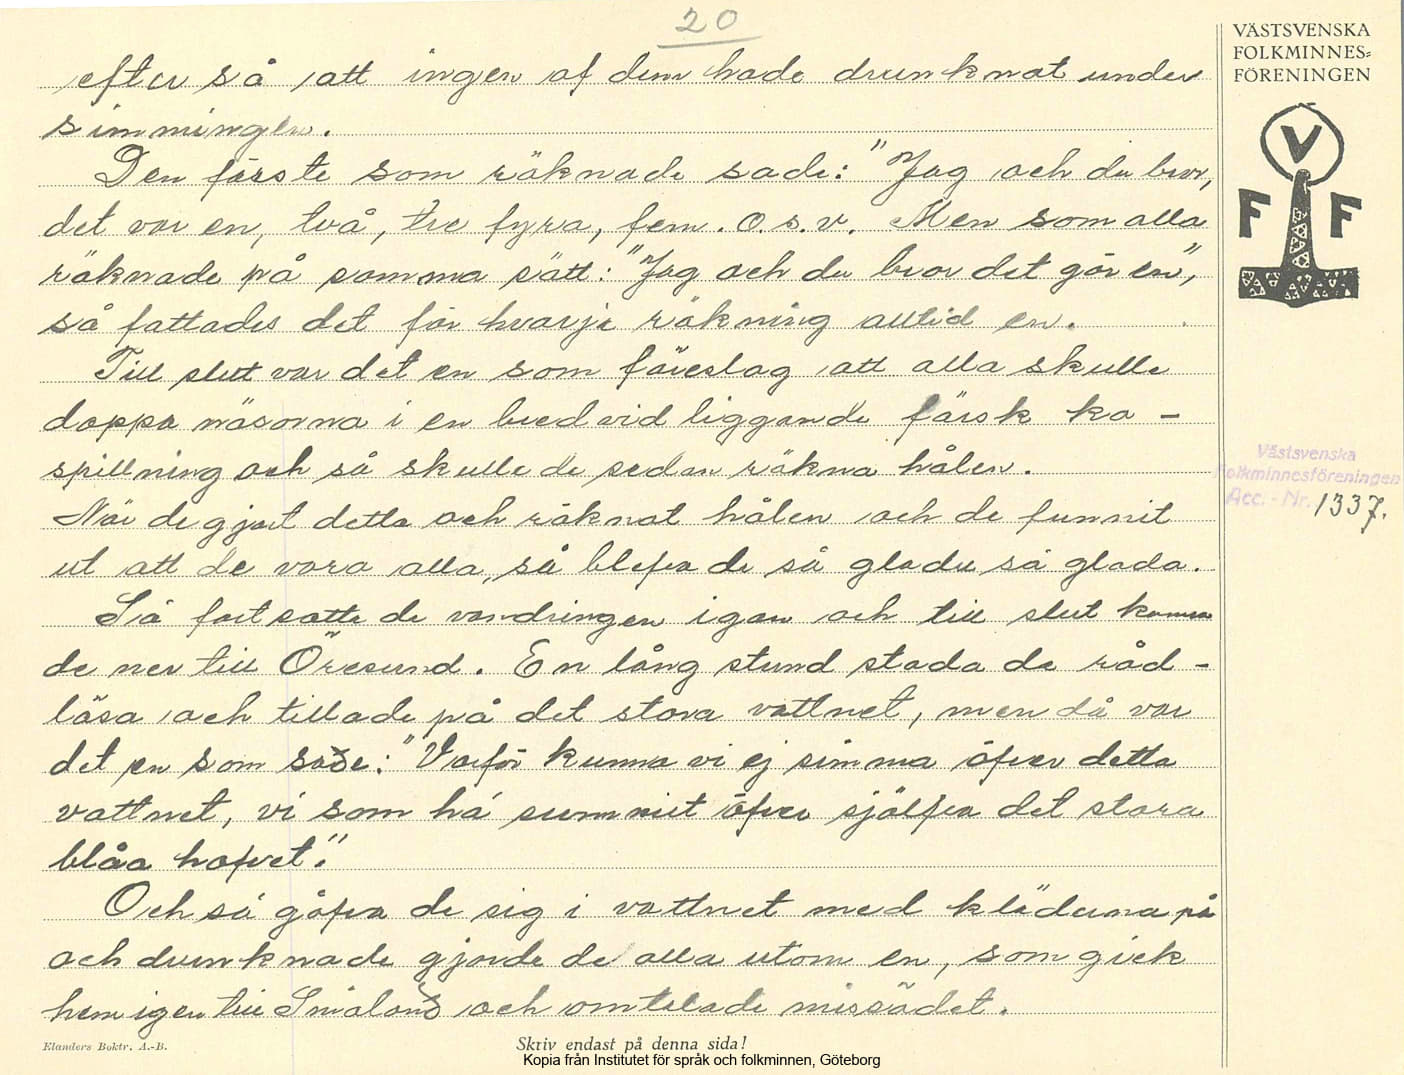 20
VÄSTSVENSKA
FOLKMINNES=
FÖRENINGEN
V
F F
efter så att ingen af dem hade drunknat under
simmingen.
Den förste som räknade sade: "Jag och du bror,
det var en, två, tre fyra, fem. o.s.v. Men som alla
räknade på samma sätt: "Jag och du bror det gör en",
så fattades det för hvarje räkning alltid en.
Till slut var det en som föreslog att alla skulle
doppa näsorna i en bredvid liggande färsk ko-
spillning och så skulle de sedan räkna hålen.
När de gjort detta och räknat hålen och de funnit
ut att de voro alla, så blefva de så glada så glada.
Så fortsatte de vandringen igan och till slut komm
de ner till Öresund. En lång stund stода de råd-
lösa och tittade på det stora vattnet, men då var
det en som sade: "Varför kunna vi ej simma öfver detta
vattnet, vi som há summit öfver själfva det stora
blåa hafvet."
Och så gåfva de sig i vattnet med kläderna på
och drunknade gjorde de alla utom en, som gick
hem igen till Småland och omtalade missödet.
Västsvenska
Folkminnesföreningen
Acc. - Nr. 1337.
Elanders Boktr. A.-B.
Skriv endast på denna sida!
Kopia från Institutet för språk och folkminnen, Göteborg